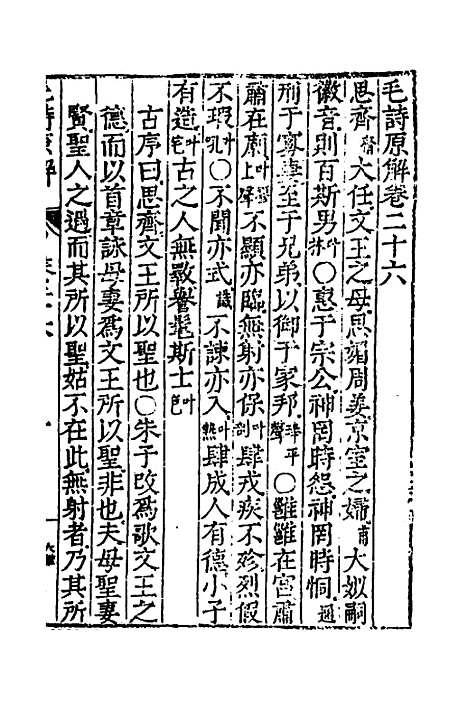 毛詩原解卷二十六
思齊齋大任文王之母思媚周姜京室之婦甫大姒嗣
徽音則百斯男○惠于宗公神罔時怨神罔時恫通
刑于寡妻至于兄弟以御于家邦平聲○雝雝在宮肅
肅在廟叶上聲不顯亦臨無射亦保叶剖肆戎疾不殄烈假
不瑕叶○不聞亦式識不諫亦入叶肆成人有德小子
有造叶古之人無斁譽髦斯士叶
古序曰思齊文王所以聖也○朱子改爲歌文王之
德而以首章詠母妻爲文王所以聖非也夫母聖妻
賢聖人之遇而其所以聖姑不在此無射者乃其所